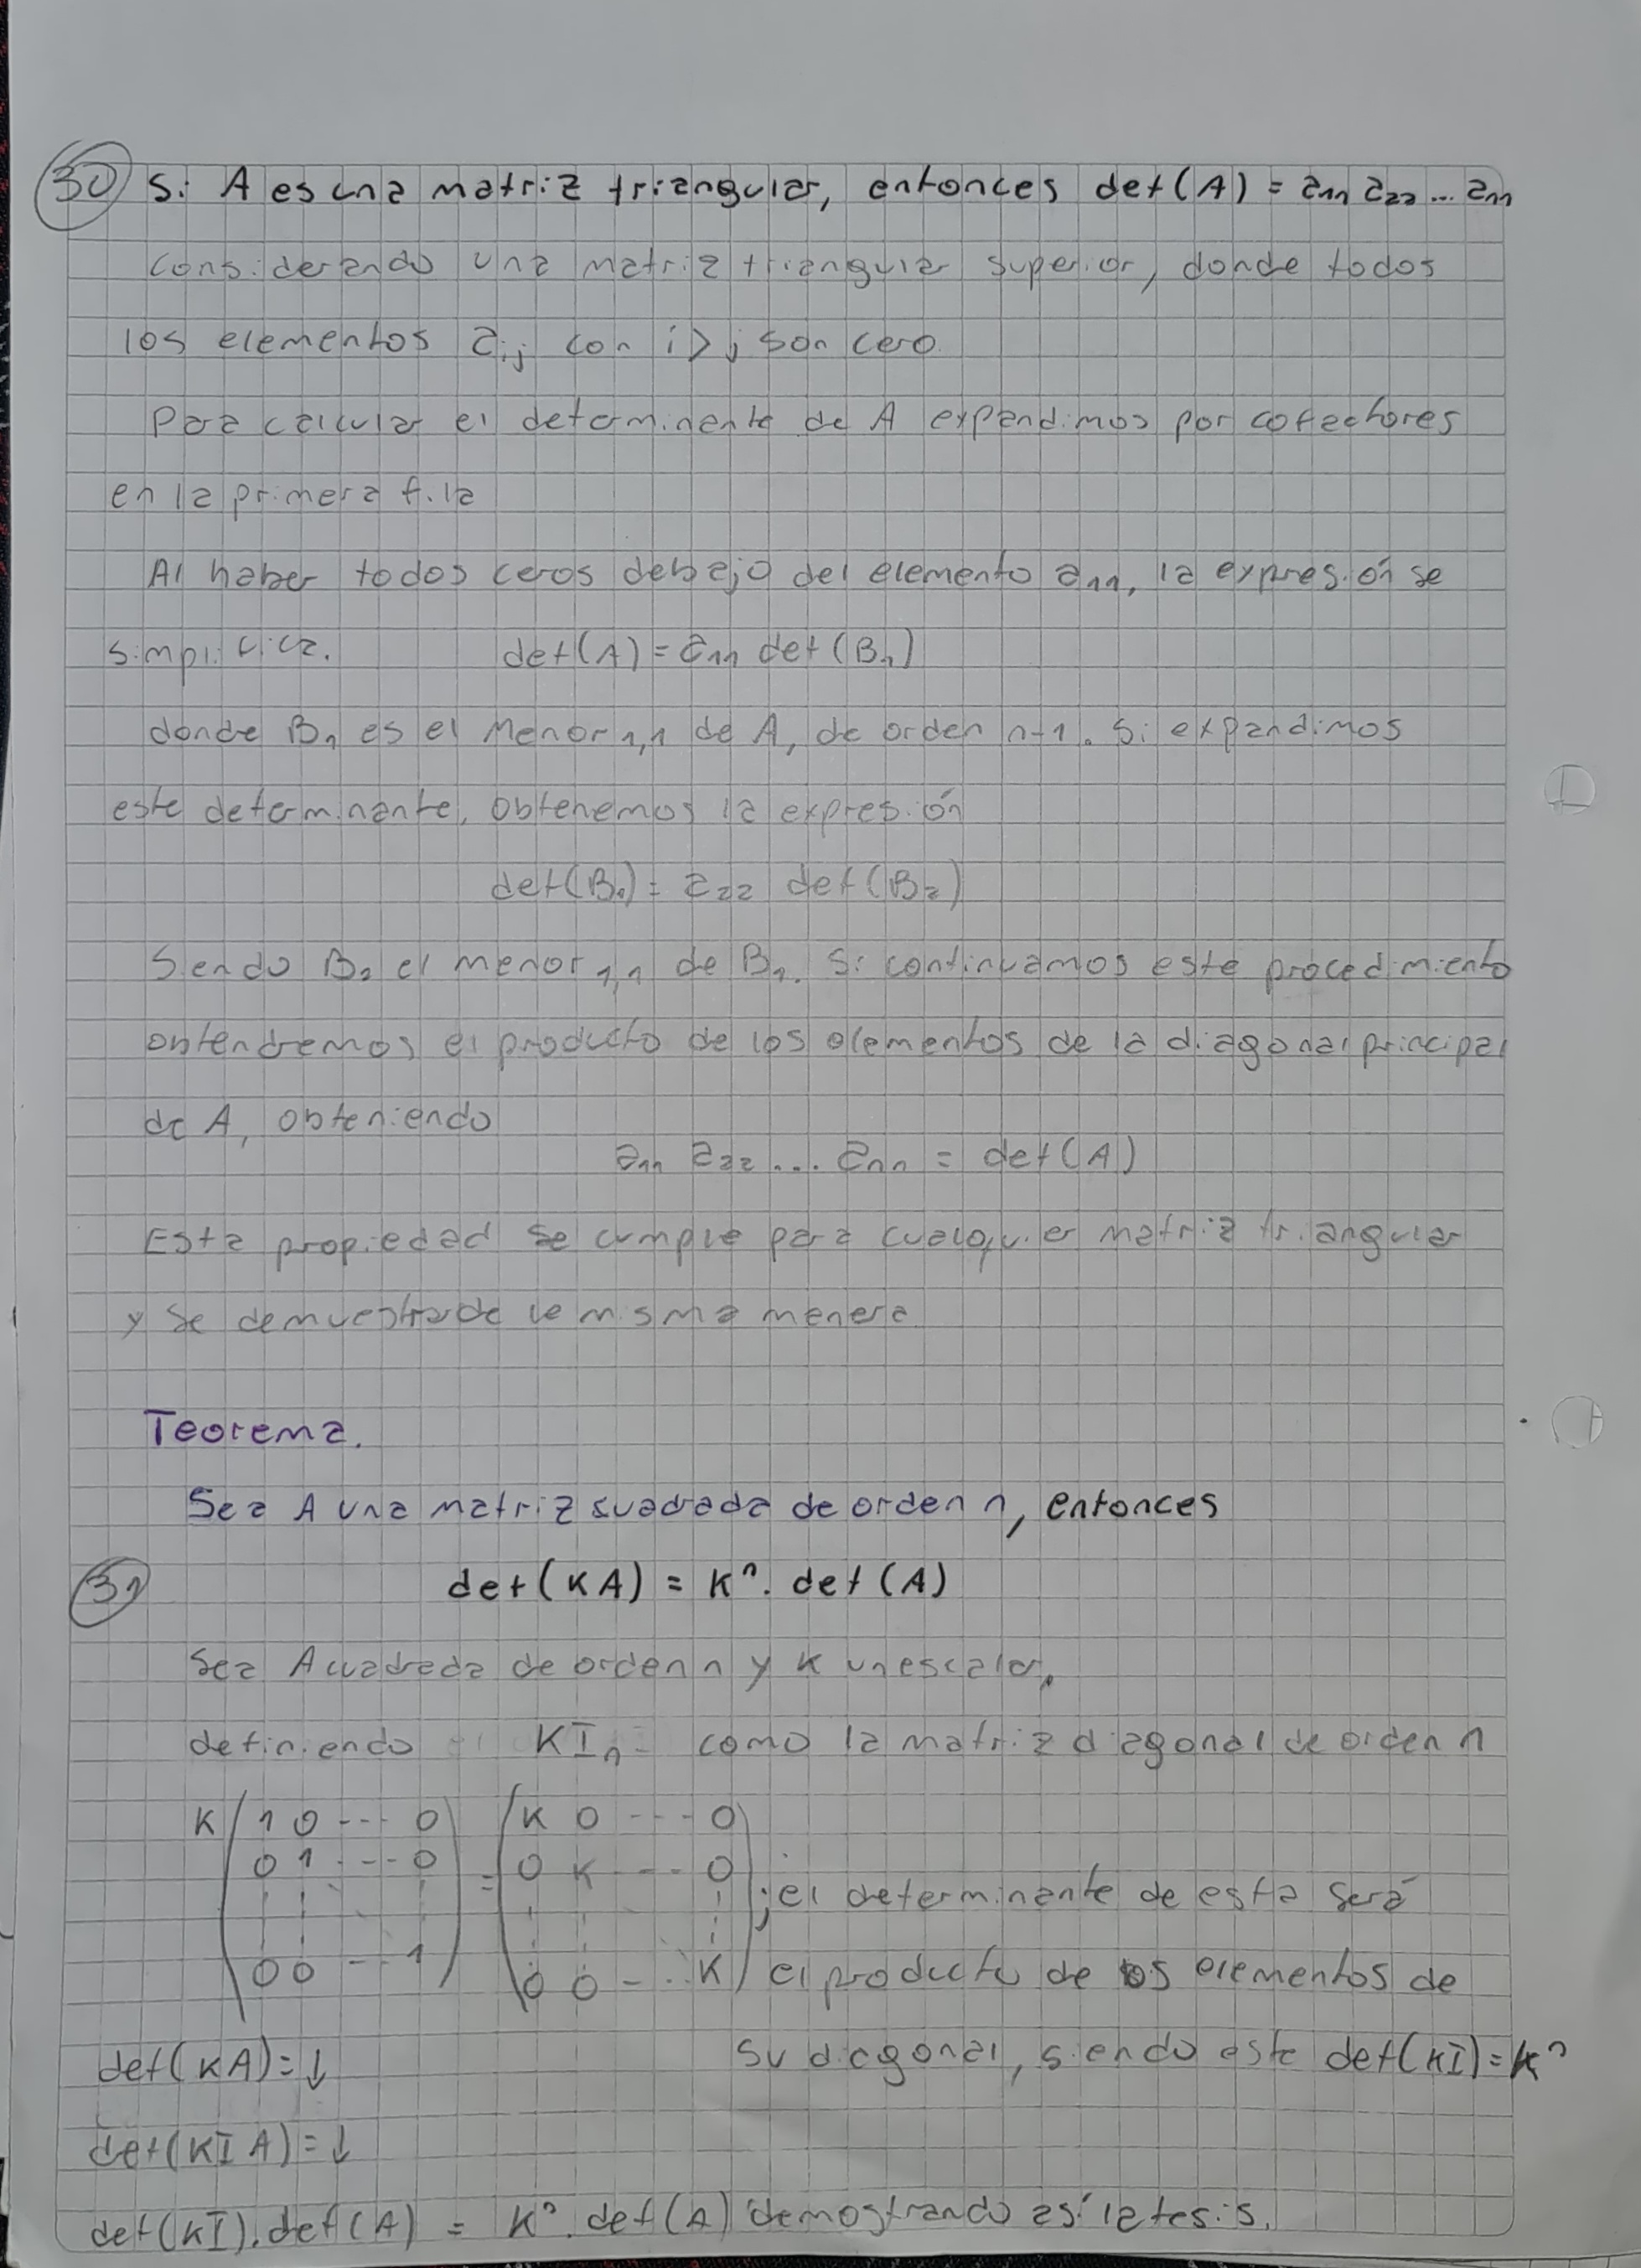 30 Si A es una matriz triangular, entonces det(A) = a₁₁ a₂₂ ... a₁₁
considerando una matriz triangular superior, donde todos
los elementos aᵢⱼ con i>j son cero.
Para calcular el determinente de A expandimos por cofactores
en la primera fila
Al haber todos ceros debajo del elemento a₁₁, la expresión se
simplifica. det(A) = a₁₁ det(B₁)
donde B₁ es el Menor₁,₁ de A, de orden n-1. Si expandimos
este determinante, obtenemos la expresión
det(B₁) = a₂₂ det(B₂)
Siendo B₂ el menor₁,₁ de B₁. Si continuamos este procedimiento
obtendremos el producto de los elementos de la diagonal principal
de A, obteniendo
a₁₁ a₂₂ ... aₙₙ = det(A)
Esta propiedad se cumple para cualquier matriz triangular
y se demuestra de la misma manera
Teorema.
Sea A una matriz suadrada de orden n, entonces
31 det(KA) = Kⁿ. det(A)
Sea A cuadrada de orden n y K un escalar,
definiendo KIₙ como la matriz diagonal de orden n
K ( 1 0 --- 0 ) = ( K 0 --- 0 )
0 1 --- 0 0 K --- 0
;el determinante de esta será
0 0 -- 1 0 0 -- K el producto de los elementos de
su diagonal, siendo este det(KI) = Kⁿ
det(KA) = ↓
det(KI A) = ↓
det(KI).det(A) = Kⁿ. det(A) demostrando así la tesis.